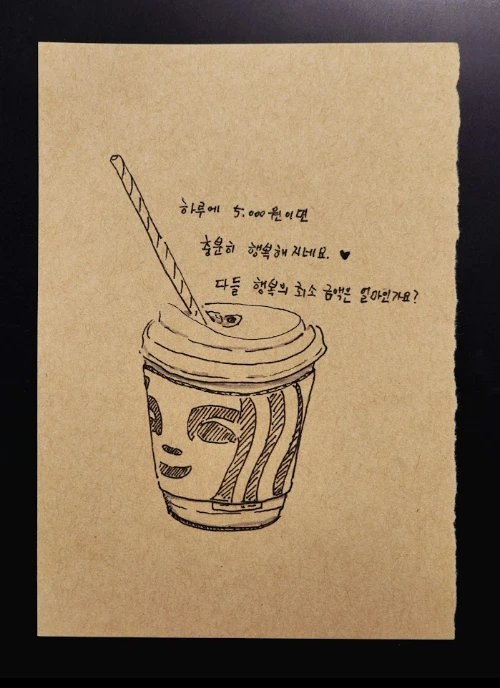 하루에 5.000원이면
충분히 행복해지네요. ♥
다들 행복의 최소 금액은 얼마인가요?